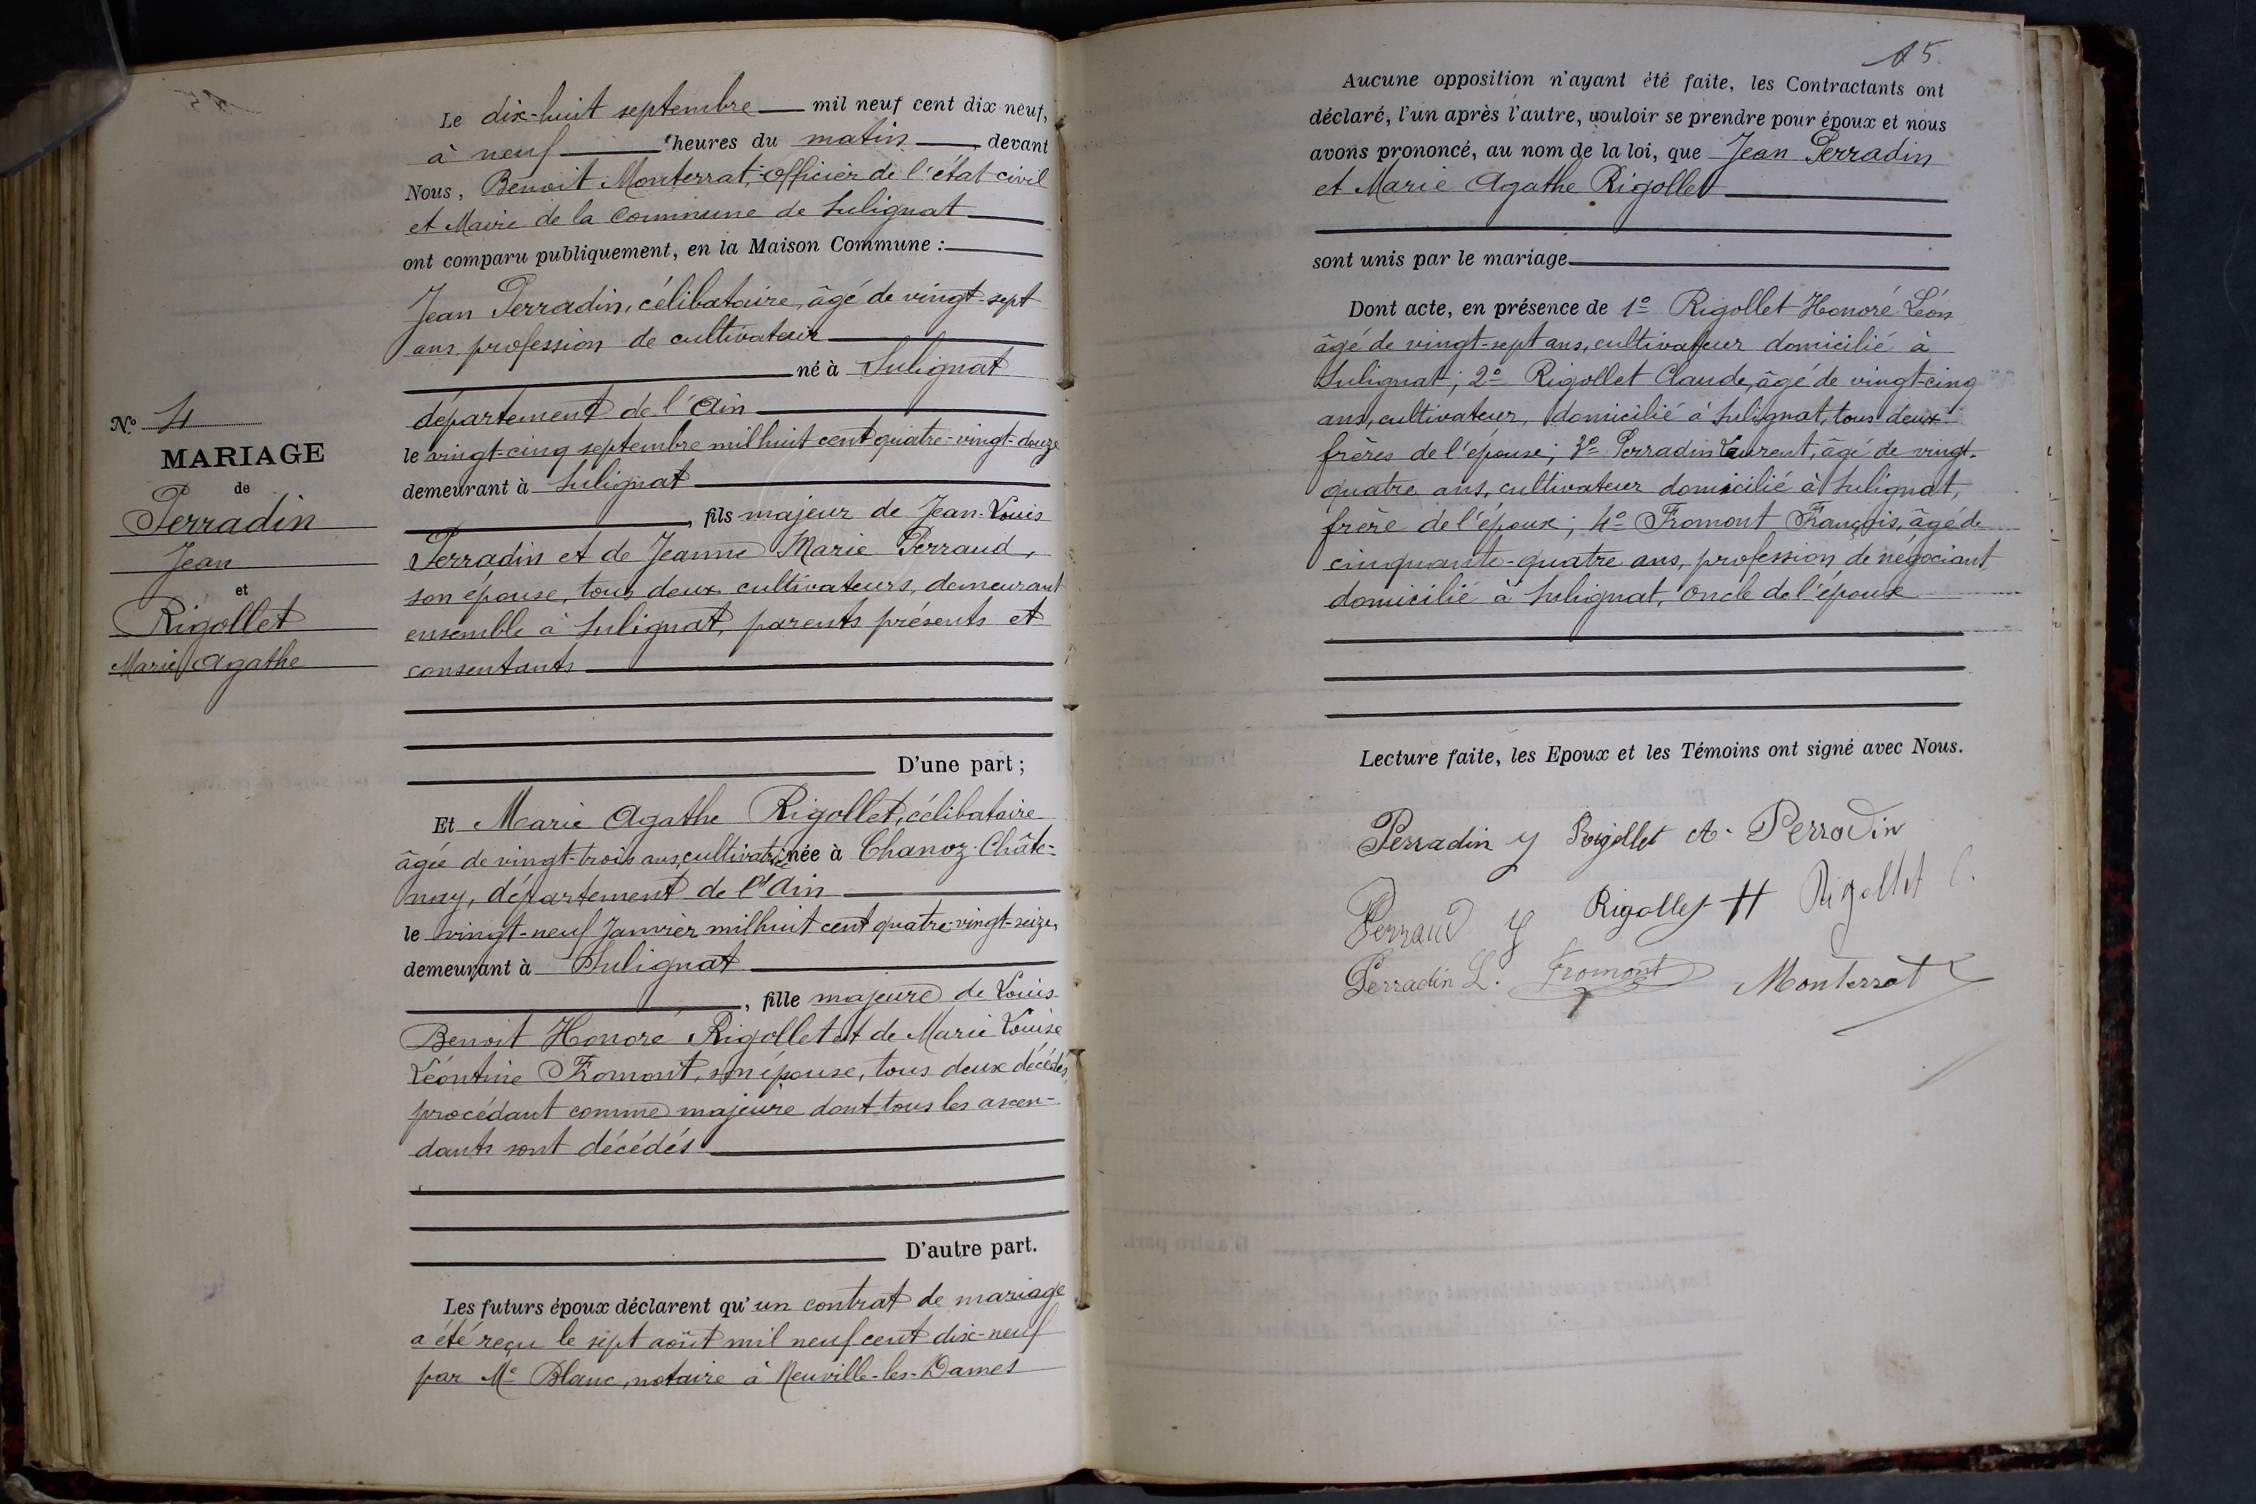 N.° 4
MARIAGE
de
Perradin
Jean
et
Rigollet
Marie Agathe
Le dix-huit septembre mil neuf cent dix neuf,
à neuf heures du matin, devant
Nous, Benoit Monterrat, Officier de l'état civil
et Maire de la Commune de Sulignat
ont comparu publiquement, en la Maison Commune :
Jean Perradin, célibataire, âgé de vingt-sept
ans, profession de cultivateur
né à Sulignat
département de l'Ain
le vingt-cinq septembre mil huit cent quatre-vingt-douze
demeurant à Sulignat
, fils majeur de Jean-Louis
Perradin et de Jeanne Marie Perraud,
son épouse, tous deux cultivateurs, demeurant
ensemble à Sulignat, parents présents et
consentants
D'une part ;
Et Marie Agathe Rigollet, célibataire
âgée de vingt-trois ans, cultivatrice née à Chanoz-Châte-
nay, département de l'Ain
le vingt-neuf Janvier mil huit cent quatre-vingt-seize,
demeurant à Sulignat
, fille majeure de Louis
Benoit Honoré Rigollet et de Marie Louise
Léontine Fromont, son épouse, tous deux décédés,
procédant comme majeure dont tous les ascen-
dants sont décédés
D'autre part.
Les futurs époux déclarent qu'un contrat de mariage
a été reçu le sept août mil neuf cent dix-neuf
par Me Blanc, notaire à Neuville-les-Dames
15.
Aucune opposition n'ayant été faite, les Contractants ont
déclaré, l'un après l'autre, vouloir se prendre pour époux et nous
avons prononcé, au nom de la loi, que Jean Perradin
et Marie Agathe Rigollet
sont unis par le mariage
Dont acte, en présence de 1° Rigollet Honoré Léon
âgé de vingt-sept ans, cultivateur domicilié à
Sulignat ; 2° Rigollet Claude, âgé de vingt-cinq
ans, cultivateur, domicilié à Sulignat, tous deux
frères de l'épouse ; 3° Perradin Laurent, âgé de vingt-
quatre ans, cultivateur domicilié à Sulignat,
frère de l'époux ; 4° Fromont François, âgé de
cinquante-quatre ans, profession de négociant,
domicilié à Sulignat, oncle de l'épouse
Lecture faite, les Epoux et les Témoins ont signé avec Nous.
Perradin J Rigollet A. Perradin
Perraud J Rigollet H Rigollet C.
Perradin L. Fromont Monterrat